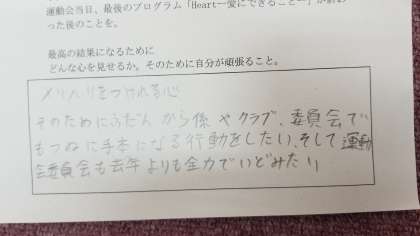 運動会当日、最後のプログラム「Heart－愛にできること－」が終わ
った後のことを。
最高の結果になるために
どんな心を見せるか。そのために自分が頑張ること。
メリハリをつけれる心
そのためにふだんから係やクラブ、委員会で
もつねに手本になる行動をしたい、そして運動
会委員会も去年よりも全力でいどみたい